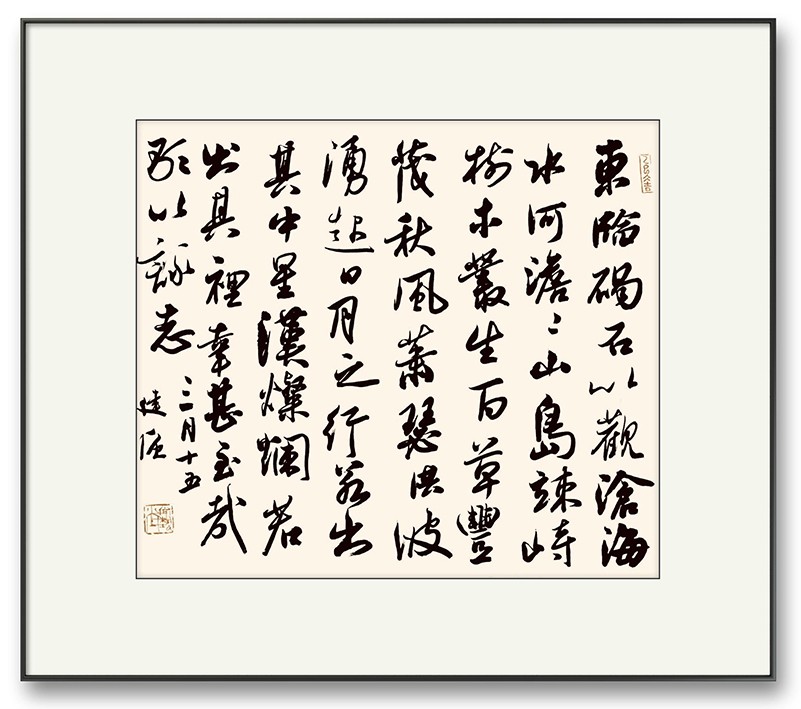 東臨碣石以觀滄海
水河澹〻山島竦峙
樹木叢生百草豐
茂秋風蕭瑟洪波
湧起日月之行若出
其中星漢燦爛若
出其裡幸甚至哉
歌以詠志
三月十五